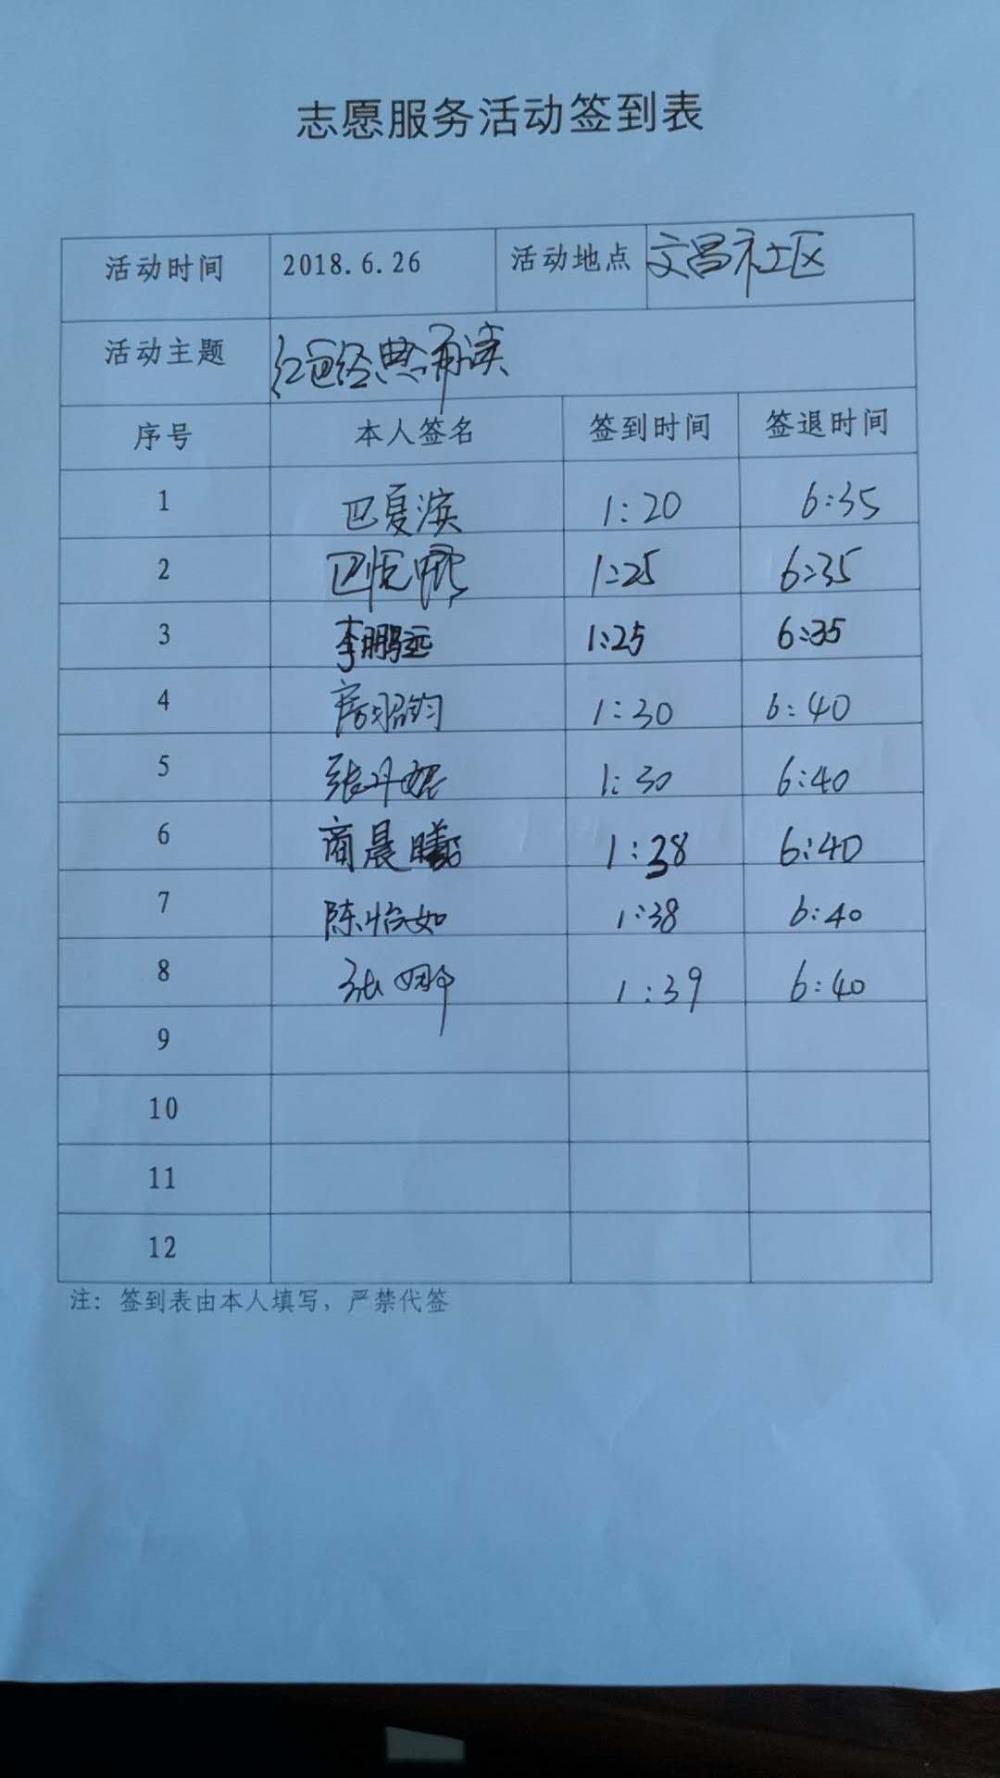 志愿服务活动签到表
活动时间 2018.6.26 活动地点 文昌社区
活动主题 红色经典诵读
序号 本人签名 签到时间 签退时间
1 巴夏滨 1:20 6:35
2 1:25 6:35
3 李鹏远 1:25 6:35
4 1:30 6:40
5 1:30 6:40
6 商晨曦 1:38 6:40
7 陈怡如 1:38 6:40
8 张娜 1:39 6:40
9
10
11
12
注：签到表由本人填写，严禁代签